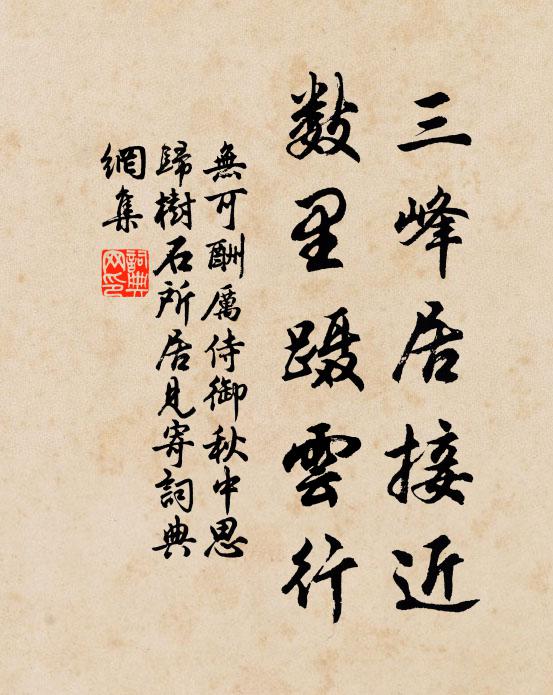 三峰居接近
数里蹑雲行
無可酬厲侍御秋中思
歸樹石所居見寄詞典
網集
詞典
网印